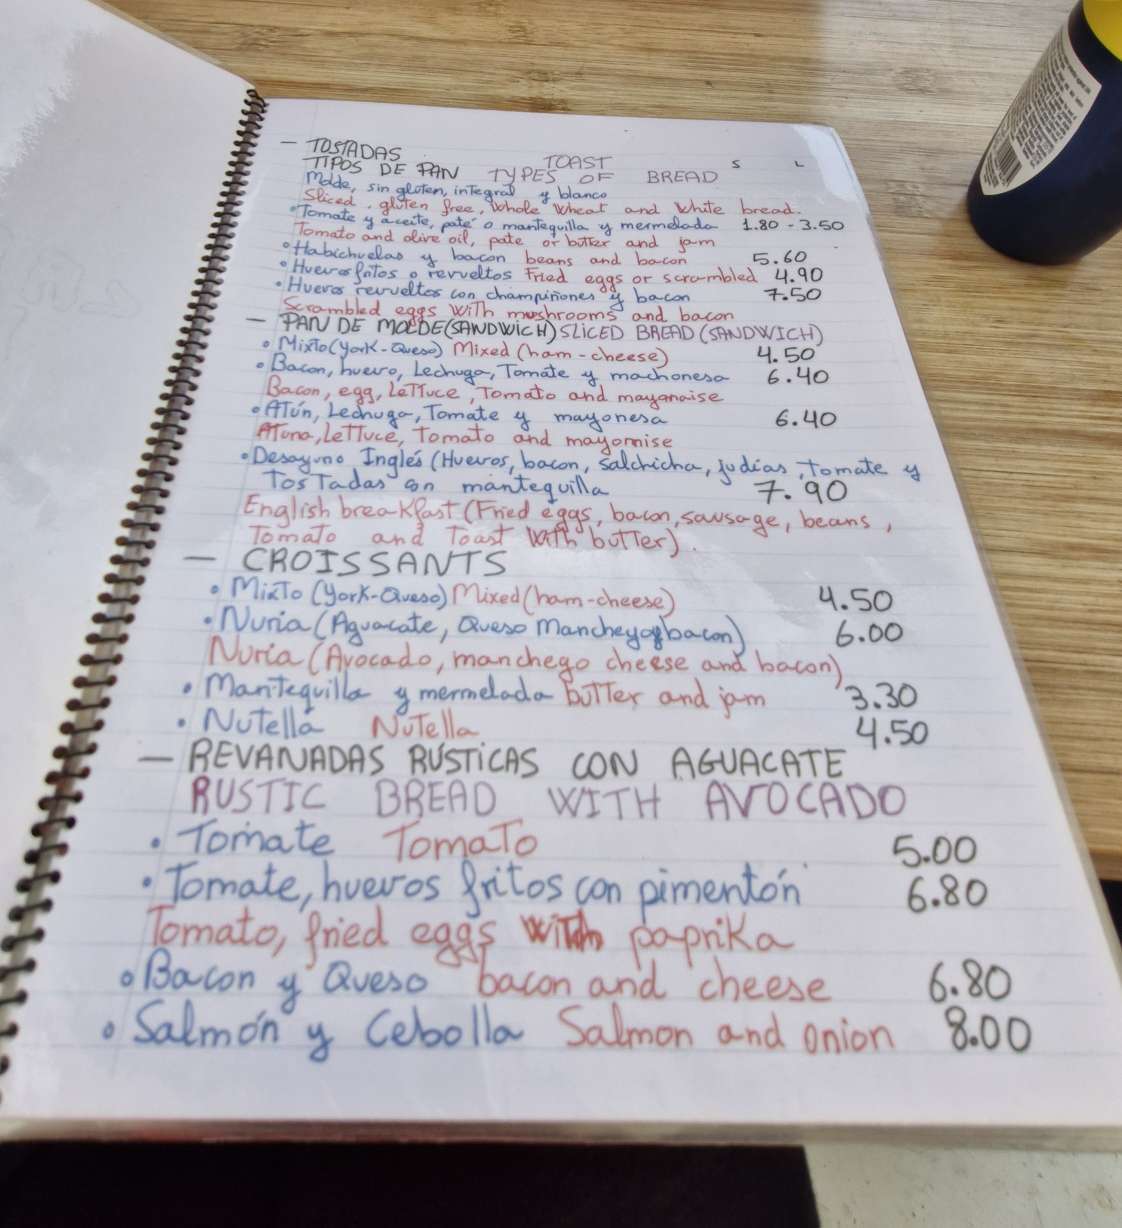 - TOSTADAS TOAST S L
TIPOS DE PAN TYPES OF BREAD
Molde, sin gluten, integral y blanco
Sliced, gluten free, Whole Wheat and White bread.
• Tomate y aceite, paté o mantequilla y mermelada 1.80 - 3.50
Tomato and olive oil, pate or butter and jam
• Habichuelas y bacon beans and bacon 5.60
• Huevos fritos o revueltos Fried eggs or scrambled 4.90
• Huevos revueltos con champiñones y bacon 7.50
Scrambled eggs with mushrooms and bacon
- PAN DE MOLDE(SANDWICH) SLICED BREAD (SANDWICH)
• Mixto (York-Queso) Mixed (ham-cheese) 4.50
• Bacon, huevo, Lechuga, Tomate y machonesa 6.40
Bacon, egg, LeTTuce, Tomato and mayonaise
• ATún, Lechuga, Tomate y mayonesa 6.40
ATuna, LeTTuce, Tomato and mayonnise
• Desayuno Inglés (Huevos, bacon, Salchicha, judias, Tomate y
TosTadas con mantequilla 7.90
English breakfast (Fried eggs, bacon, sausage, beans,
Tomato and Toast With buTTer).
- CROISSANTS
• MixTo (York-Queso) Mixed (ham-cheese) 4.50
• Nuria (Aguacate, Queso Manchego y bacon) 6.00
Nuria (Avocado, manchego cheese and bacon)
• Mantequilla y mermelada buTTer and jam 3.30
• NuTella NuTella 4.50
- REVANADAS RÚSTICAS CON AGUACATE
RUSTIC BREAD WITH AVOCADO
• Tomate TomaTo 5.00
• Tomate, huevos fritos con pimentón 6.80
Tomato, fried eggs with paprika
• Bacon y Queso bacon and cheese 6.80
• Salmón y Cebolla Salmon and onion 8.00